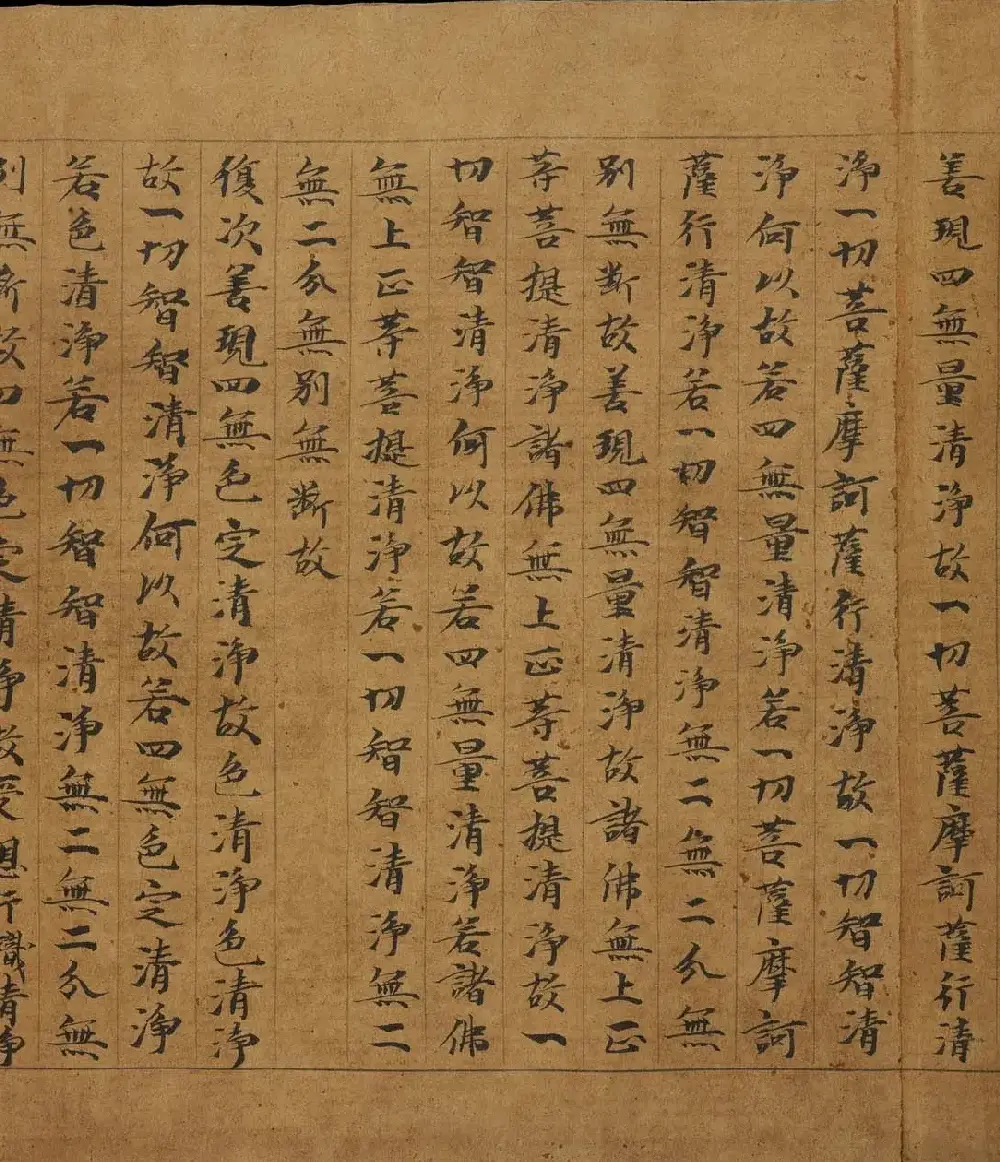 善現四無量清淨故一切菩薩摩訶薩行清
淨一切菩薩摩訶薩行清淨故一切智智清
淨何以故若四無量清淨若一切菩薩摩訶
薩行清淨若一切智智清淨無二無二分無
別無斷故善現四無量清淨故諸佛無上正
等菩提清淨諸佛無上正等菩提清淨故一
切智智清淨何以故若四無量清淨若諸佛
無上正等菩提清淨若一切智智清淨無二
無二分無別無斷故
復次善現四無色定清淨故色清淨色清淨
故一切智智清淨何以故若四無色定清淨
若色清淨若一切智智清淨無二無二分無
別無斷故四無色定清淨故受想行識清淨